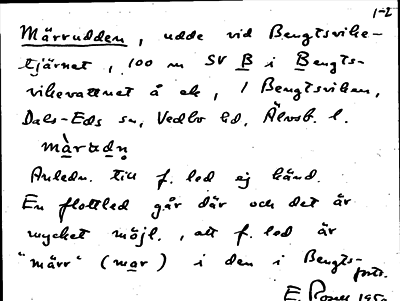 1-2
Märrudden, udde vid Bengtsvike-
tjärnet, 100 m SV B i Bengts-
vikevattnet å ek, 1 Bengtsviken,
Dals-Eds sn, Vedbo hd, Älvsb. l.
Anledn. till f. led ej känd.
En flottled går där och det är
mycket möjl., att f. led är
"märr" (mar) i den i Bengts-
E. 195